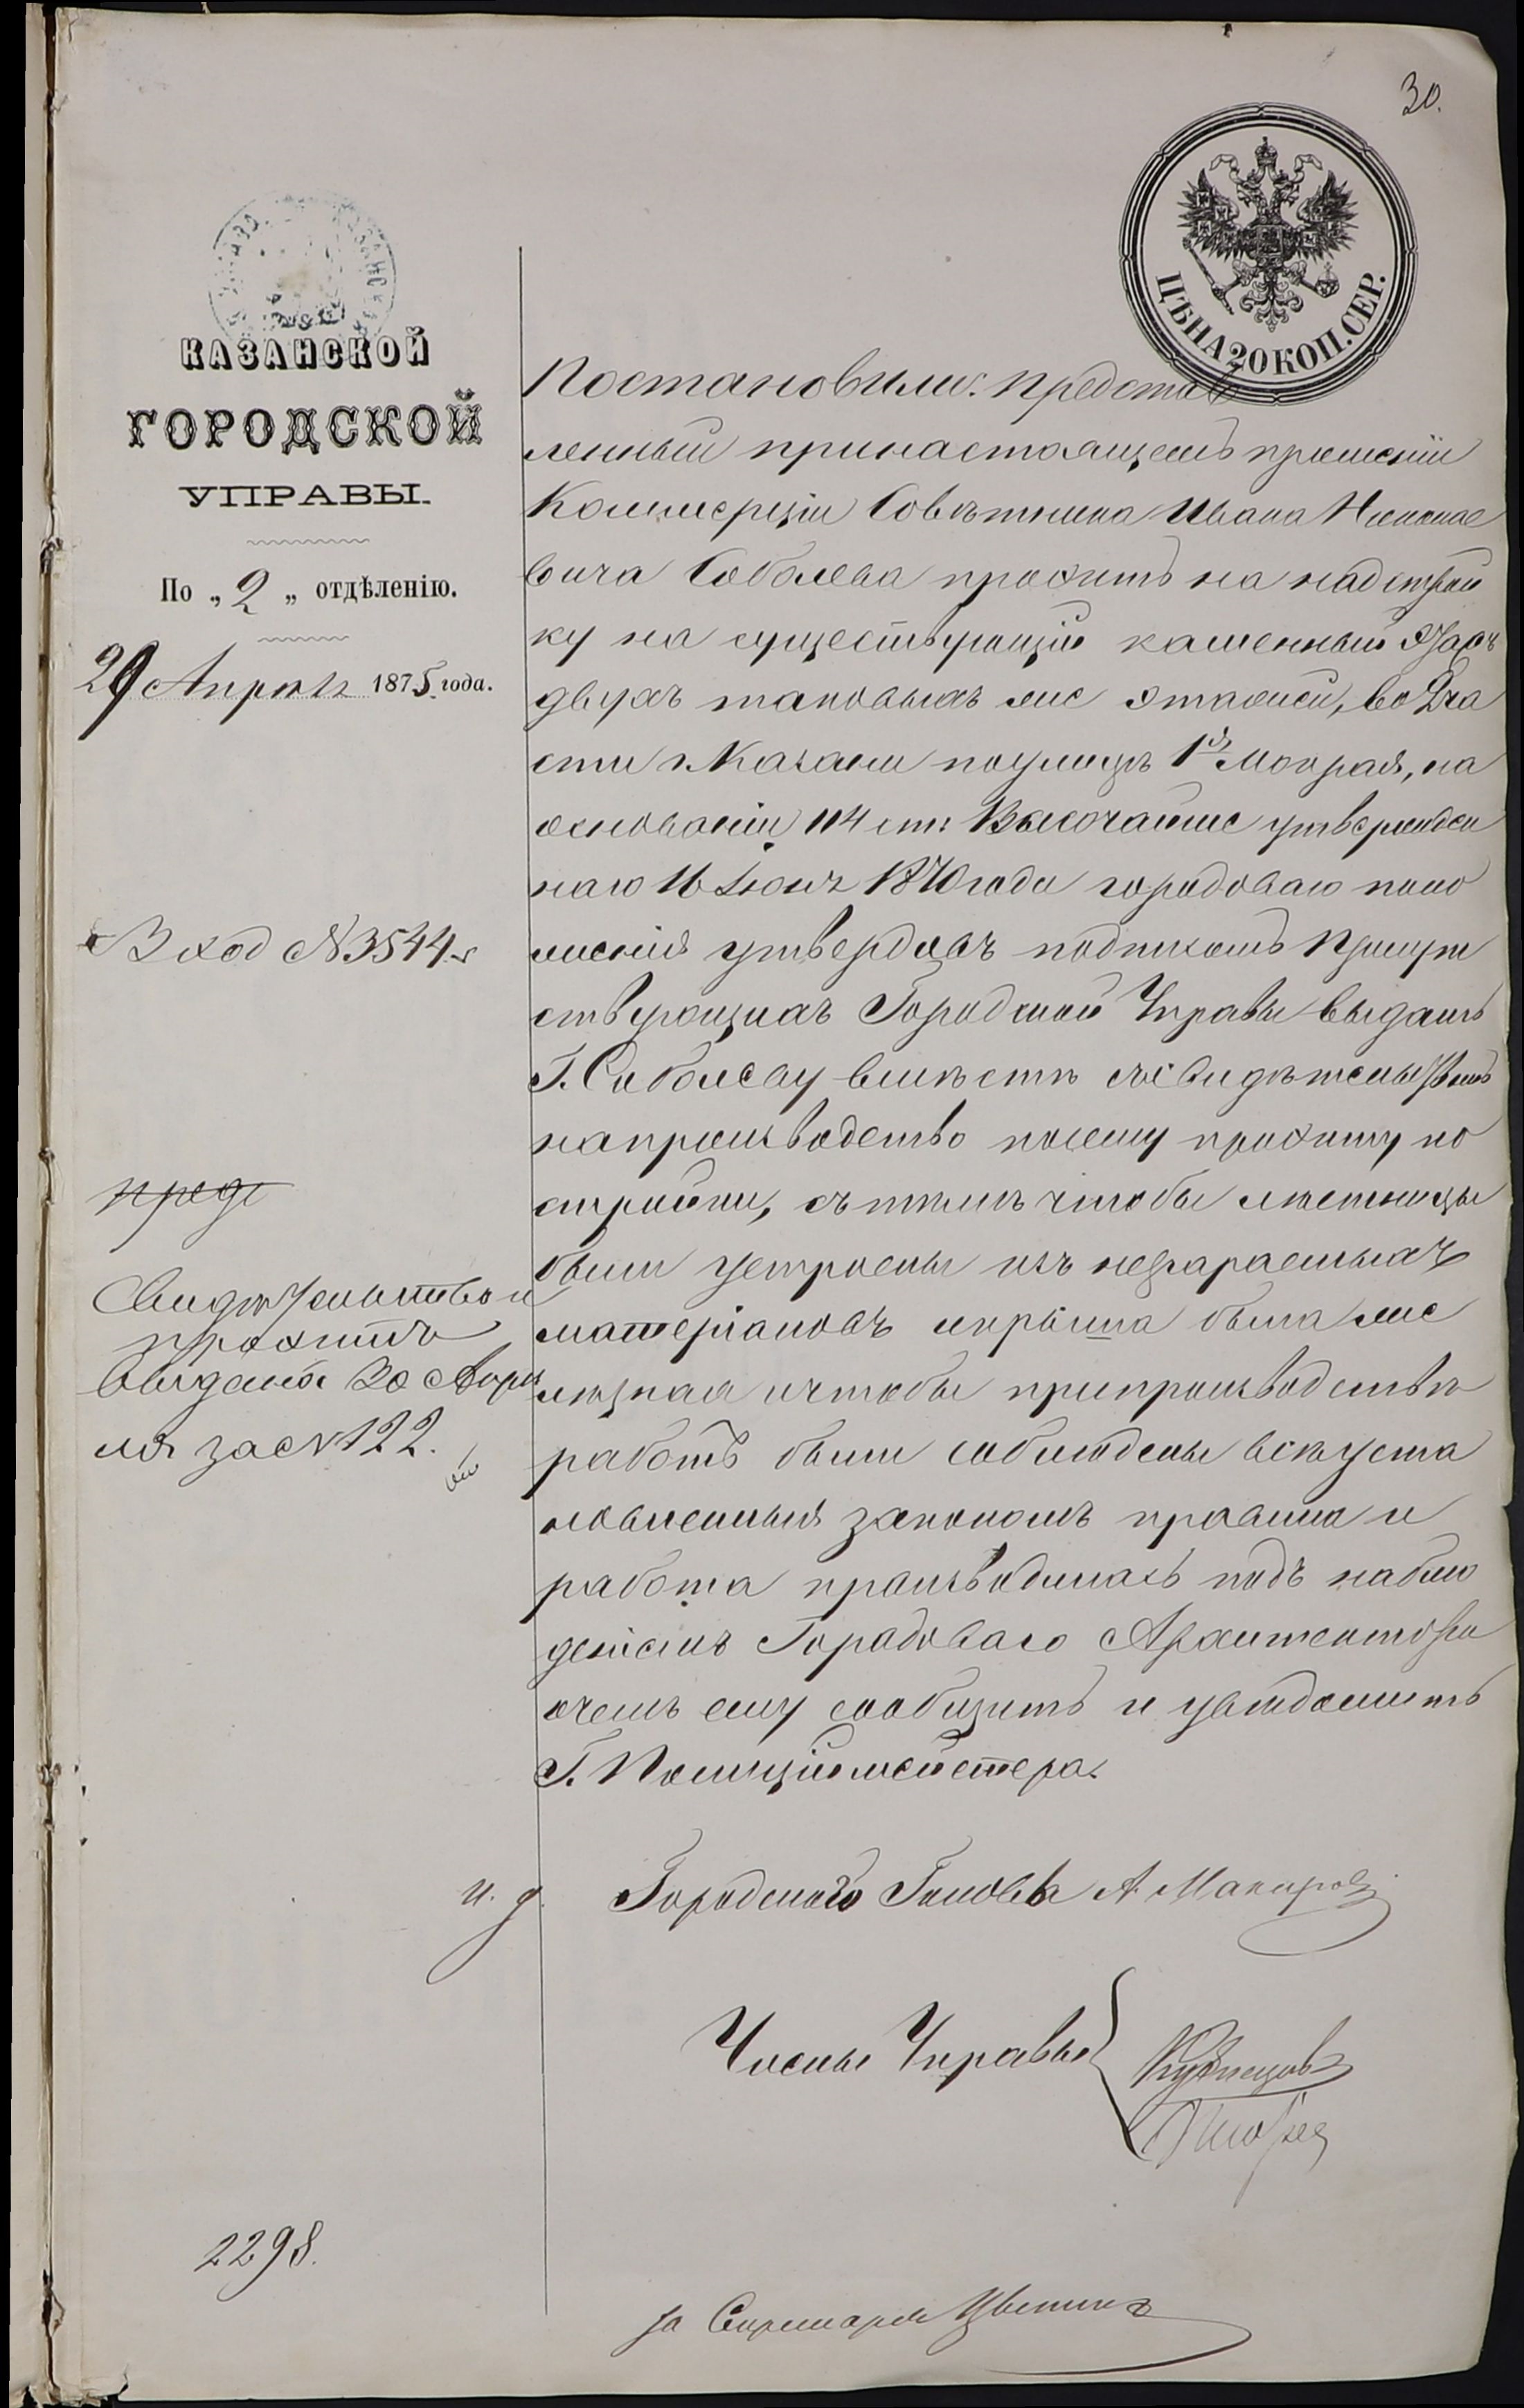 30.
ЦѢНА 20 КОП. СЕР.
КАЗАНСКОЙ
ГОРОДСКОЙ
УПРАВЫ.
По „2„ отдѣленію.
29 Апрѣля 1875 года.
Вход №3544
преде
Свидѣтельство и
проэктъ
выданы 30 Апрѣ
ля за №122.
Постановили: представ
ленный при настоящемъ прошеніи
Коммерціи Совѣтника Ивана Николае
вича Соболева проэктъ на надстрой
ку на существующій каменный этажъ
двухъ таковыхъ же этажей, во 2 ча
сти г. Казани по улицѣ 1я Мокрая, на
основаніи 114 ст: Высочайше утвержден
наго 16 Іюня 1870 года городоваго поло
женія утвердивъ подписомъ Присут
ствующихъ Городской Управы выдать
Г. Соболеву вмѣстѣ съ свидѣтельствомъ
на производство по сему проэкту по
стройки, съ тѣмъ чтобы лѣстницы
были устроены изъ несгараемыхъ
матеріаловъ и крыша была же
лѣзная и чтобы при производствѣ
работъ были соблюдены всѣ уста
новленныя закономъ правила и
работа производилась подъ наблю
деніемъ Городоваго Архитектора
о чемъ ему сообщить и увѣдомить
Г. Полиціймейстера.
и. д. Городскаго Головы А. Макаров
Члены Управы
Кузнецовъ
2298.
за Секретаря Цветких